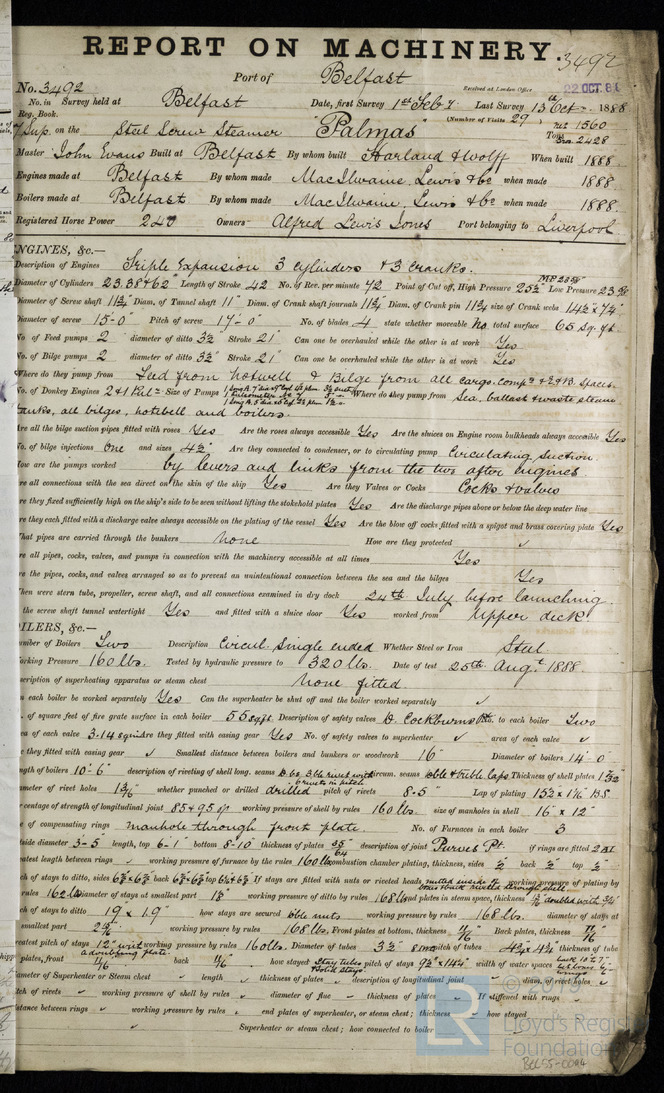 REPORT ON MACHINERY. 3492
Port of Belfast
No. 3492 Received at London Office 22 OCT. 88
No. in Survey held at Belfast Date, first Survey 1st Feby. Last Survey 13th Oct. 1888
Reg. Book. (Number of Visits 29)
on the Steel Screw Steamer "Palmas" Tons net 1560 Gro. 2428
Master John Evans Built at Belfast By whom built Harland & Wolff When built 1888.
Engines made at Belfast By whom made MacIlwaine, Lewis & Co when made 1888.
Boilers made at Belfast By whom made MacIlwaine, Lewis & Co when made 1888.
Registered Horse Power 240 Owners Alfred Lewis Jones Port belonging to Liverpool
NGINES, &c.—
Description of Engines Triple Expansion 3 cylinders & 3 cranks.
Diameter of Cylinders 23.38 & 62" Length of Stroke 42 No. of Rev. per minute 72 Point of Cut off, High Pressure 25½ Low Pressure
Diameter of Screw shaft 11¾ Diam. of Tunnel shaft 11" Diam. of Crank shaft journals 11¾ Diam. of Crank pin 11¾ size of Crank webs 14½ × 7¼"
Diameter of screw 15-0" Pitch of screw 17'-0" No. of blades 4 state whether moveable No total surface 65 sq. ft.
No of Feed pumps 2 diameter of ditto 3½ Stroke 21" Can one be overhauled while the other is at work Yes
No of Bilge pumps 2 diameter of ditto 3½ Stroke 21" Can one be overhauled while the other is at work Yes
Where do they pump from Feed from hotwell & Bilge from all cargo compts & E & B. Spaces.
No. of Donkey Engines Size of Pumps Where do they pump from Sea, ballast & waste steam
tanks, all bilges, hotwell and boilers.
re all the bilge suction pipes fitted with roses Yes Are the roses always accessible Yes Are the sluices on Engine room bulkheads always accessible Yes
No. of bilge injections One and sizes 4½" Are they connected to condenser, or to circulating pump Circulating suction.
How are the pumps worked by levers and links from the two after engines
re all connections with the sea direct on the skin of the ship Yes Are they Valves or Cocks Cocks & valves
re they fixed sufficiently high on the ship's side to be seen without lifting the stokehold plates Yes Are the discharge pipes above or below the deep water line
re they each fitted with a discharge valve always accessible on the plating of the vessel Yes Are the blow off cocks fitted with a spigot and brass covering plate Yes
What pipes are carried through the bunkers none How are they protected
re all pipes, cocks, valves, and pumps in connection with the machinery accessible at all times Yes
re the pipes, cocks, and valves arranged so as to prevent an unintentional connection between the sea and the bilges Yes
hen were stern tube, propeller, screw shaft, and all connections examined in dry dock 24th July before launching.
the screw shaft tunnel watertight Yes and fitted with a sluice door Yes worked from Upper deck
OILERS, &c.—
umber of Boilers Two Description Circul. Single ended Whether Steel or Iron Steel
orking Pressure 160 lbs. Tested by hydraulic pressure to 320 lbs. Date of test 25th Augt 1888
scription of superheating apparatus or steam chest None fitted
n each boiler be worked separately Yes Can the superheater be shut off and the boiler worked separately ✓
. of square feet of fire grate surface in each boiler 55 sq ft. Description of safety valves D. Cockburns Pt. to each boiler Two
ea of each valve 3.14 sq in Are they fitted with easing gear Yes No. of safety valves to superheater ✓ area of each valve ✓
re they fitted with easing gear ✓ Smallest distance between boilers and bunkers or woodwork 16" Diameter of boilers 14'-0"
ngth of boilers 10'-6" description of riveting of shell long. seams circum. seams Dble & treble laps Thickness of shell plates
ameter of rivet holes 1 3/16 whether punched or drilled drilled pitch of rivets 8.5" Lap of plating 15½ × 1⅛ B.S
r centage of strength of longitudinal joint 85 & 95 working pressure of shell by rules 160 lbs. size of manholes in shell 16" × 12"
e of compensating rings manhole through front plate. No. of Furnaces in each boiler 3
tside diameter 3-5" length, top 6-1" bottom 8-10" thickness of plates 35/64 description of joint Purves Pt. if rings are fitted
eatest length between rings ✓ working pressure of furnace by the rules 160 lbs combustion chamber plating, thickness, sides ½" back ½" top ½"
ch of stays to ditto, sides back top If stays are fitted with nuts or riveted heads working pressure of plating by
rules 162 lbs Diameter of stays at smallest part working pressure by rules 168 lbs end plates in steam space, thickness
ch of stays to ditto 19" × 19" how stays are secured dble nuts working pressure by rules 168 lbs. diameter of stays at
smallest part working pressure by rules 168 lbs. Front plates at bottom, thickness 11/16" Back plates, thickness 11/16"
reatest pitch of stays 12" working pressure by rules 160 lbs. Diameter of tubes 3½" pitch of tubes 4¾ × 4¾ thickness of tube
plates, front 11/16 back 11/16 how stayed Stay tubes & solid stays pitch of stays 9½ × 14¼ width of water spaces
ameter of Superheater or Steam chest ✓ length ✓ thickness of plates ✓ description of longitudinal joint ✓ diam. of rivet holes ✓
itch of rivets ✓ working pressure of shell by rules ✓ diameter of flue ✓ thickness of plates ✓ If stiffened with rings ✓
istance between rings ✓ working pressure by rules ✓ end plates of superheater, or steam chest; thickness ✓ how stayed
Superheater or steam chest; how connected to boiler
LR
Lloyd's Register
Foundation